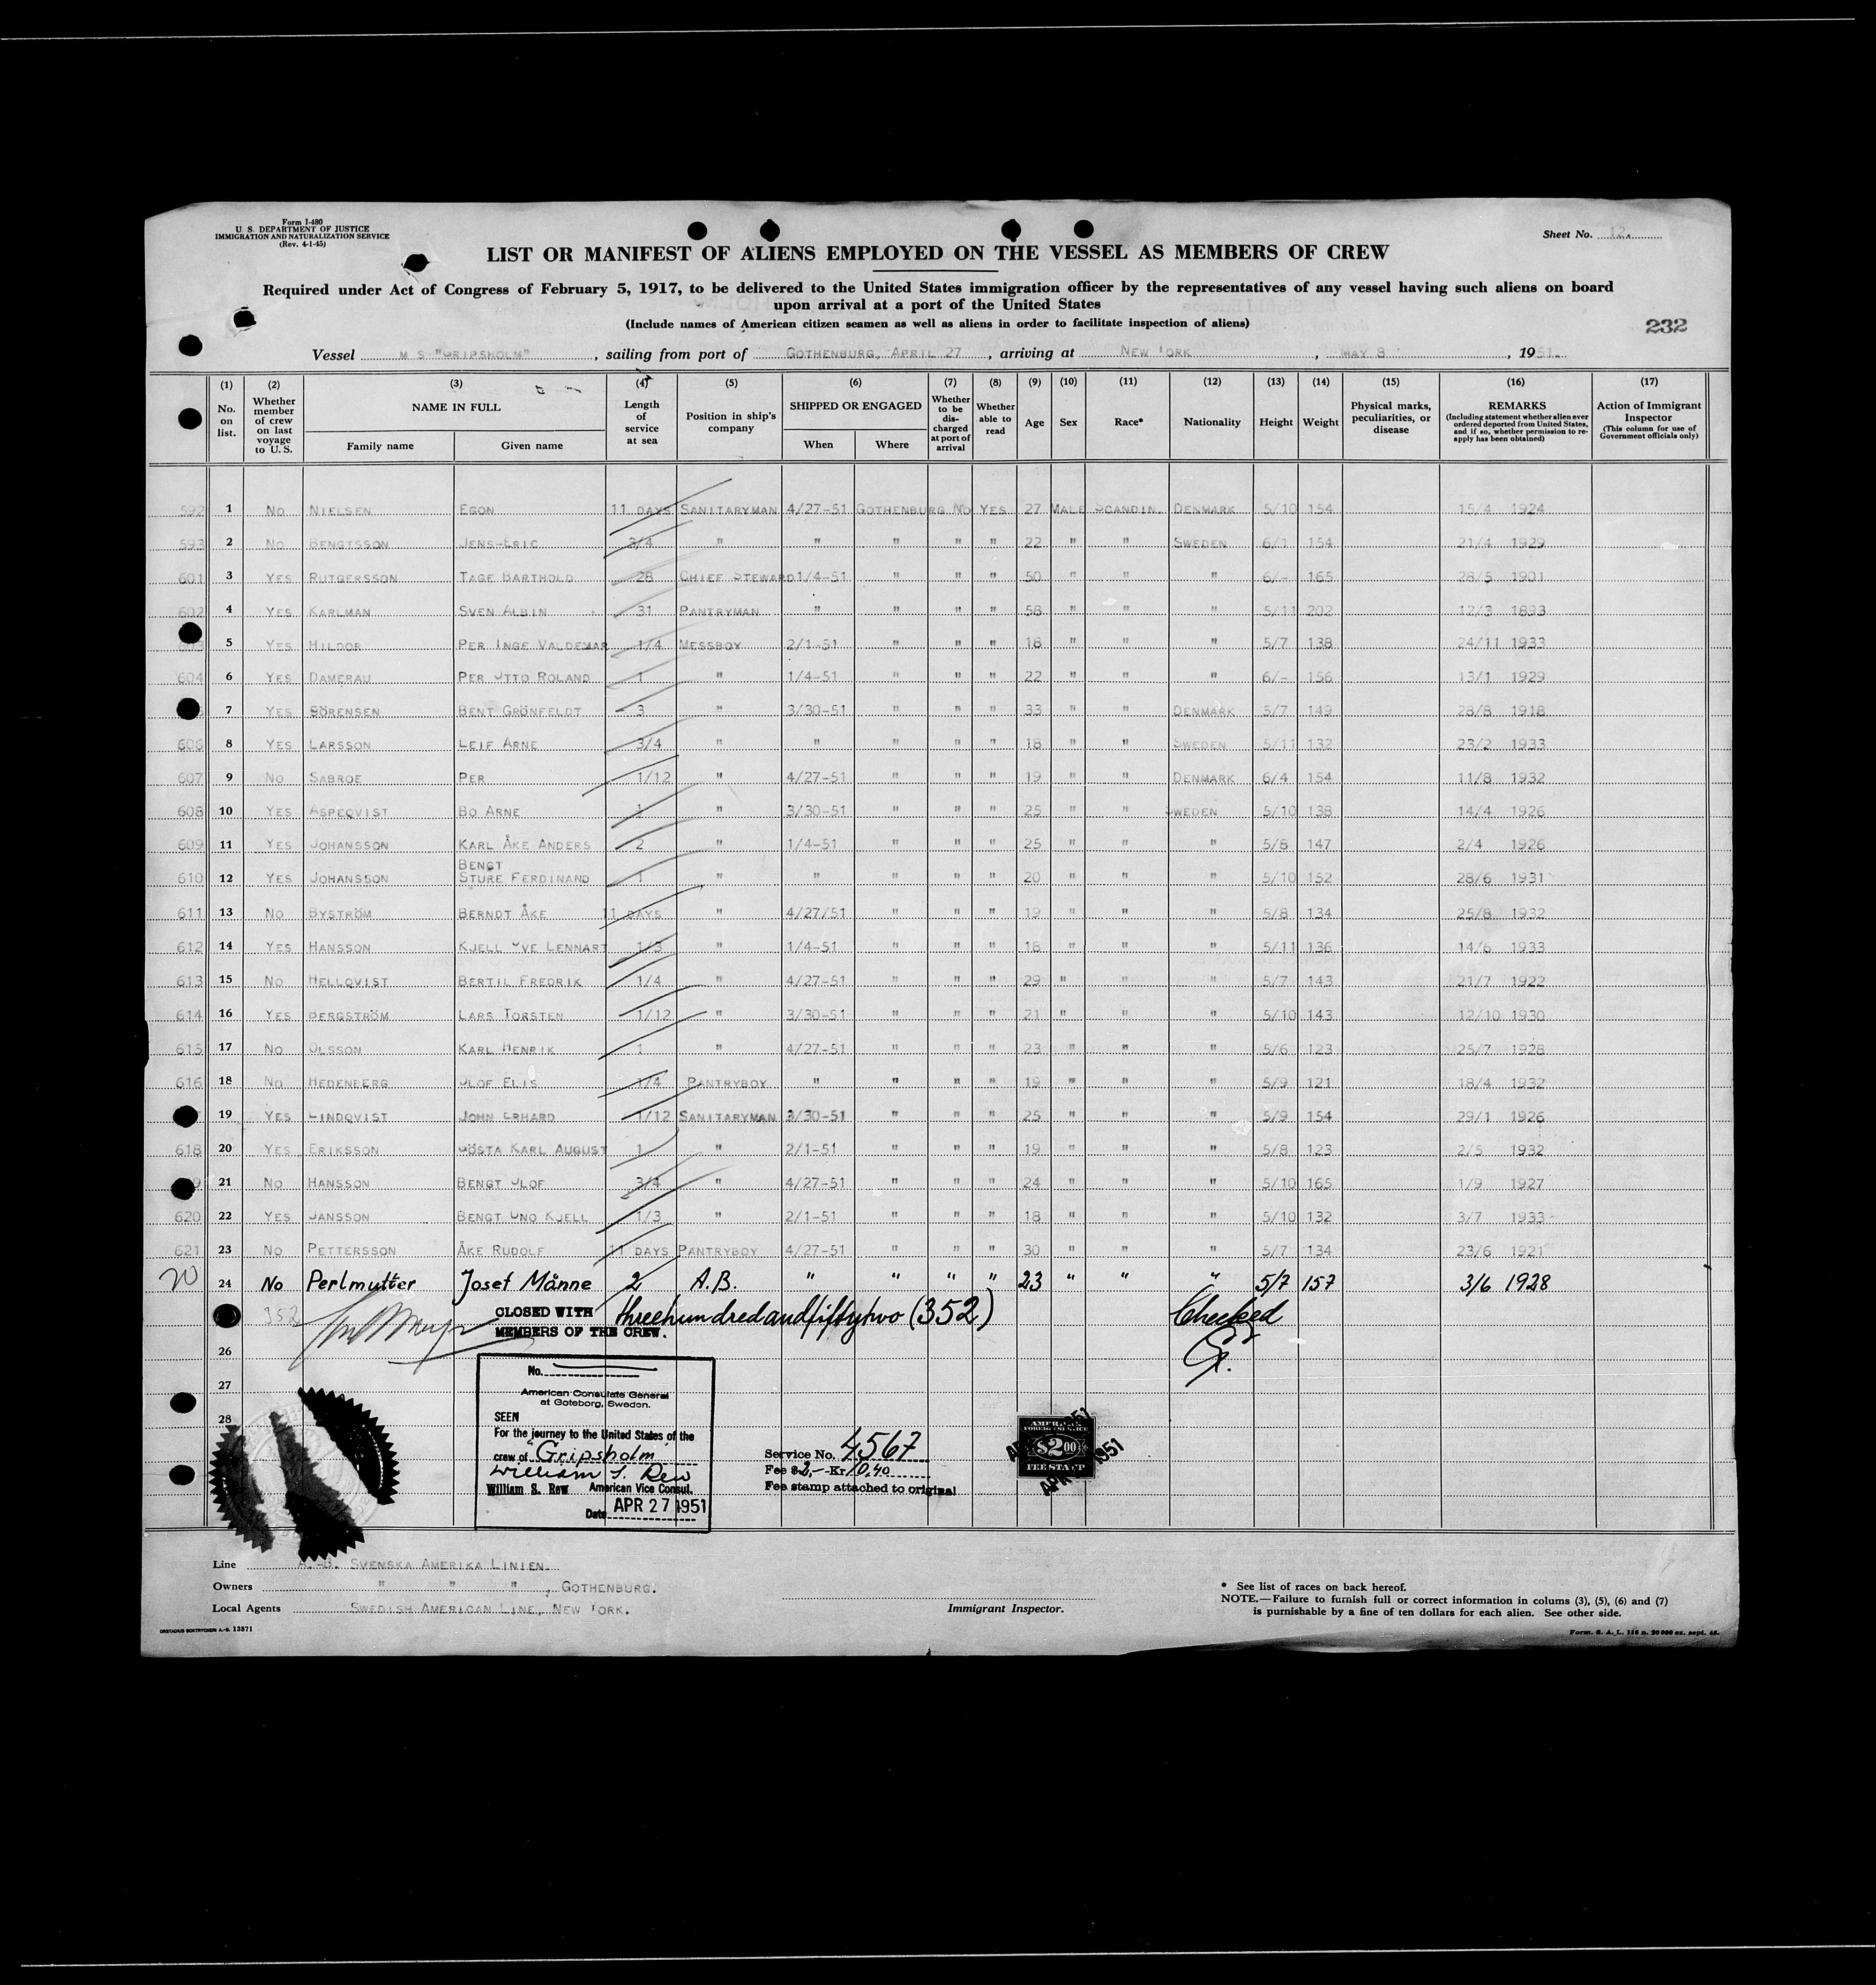 Form I-480
U. S. DEPARTMENT OF JUSTICE
IMMIGRATION AND NATURALIZATION SERVICE
(Rev. 4-1-45)
Sheet No. 12.
LIST OR MANIFEST OF ALIENS EMPLOYED ON THE VESSEL AS MEMBERS OF CREW
Required under Act of Congress of February 5, 1917, to be delivered to the United States immigration officer by the representatives of any vessel having such aliens on board
upon arrival at a port of the United States
(Include names of American citizen seamen as well as aliens in order to facilitate inspection of aliens)
232
Vessel M S "GRIPSHOLM", sailing from port of GOTHENBURG, APRIL 27, arriving at NEW YORK, MAY 8, 1951.
(1) (2) (3) (4) (5) (6) (7) (8) (9) (10) (11) (12) (13) (14) (15) (16) (17)
No. on list. Whether member of crew on last voyage to U. S. NAME IN FULL Family name Given name Length of service at sea Position in ship's company SHIPPED OR ENGAGED When Where Whether to be discharged at port of arrival Whether able to read Age Sex Race* Nationality Height Weight Physical marks, peculiarities, or disease REMARKS (Including statement whether alien ever ordered deported from United States, and if so, whether permission to re-apply has been obtained) Action of Immigrant Inspector (This column for use of Government officials only)
592 1 NO NIELSEN EGON 11 DAYS SANITARYMAN 4/27-51 GOTHENBURG NO YES 27 MALE SCANDIN. DENMARK 5/10 154 15/4 1924
593 2 NO BENGTSSON JENS-ERIC 3/4 " " " " " 22 " " SWEDEN 6/1 154 21/4 1929
601 3 YES RUTGERSSON TAGE BARTHOLD 28 CHIEF STEWARD 1/4-51 " " " 50 " " " 6/- 165 28/5 1901
602 4 YES KARLMAN SVEN ALBIN 31 PANTRYMAN " " " " 58 " " " 5/11 202 12/3 1893
603 5 YES HILDOR PER INGE VALDEMAR 1/4 MESSBOY 2/1-51 " " " 18 " " " 5/7 138 24/11 1933
604 6 YES DAMERAU PER OTTO ROLAND 1 " 1/4-51 " " " 22 " " " 6/- 156 13/1 1929
7 YES SÖRENSEN BENT GRÖNFELDT 3 " 3/30-51 " " " 33 " " DENMARK 5/7 149 28/8 1918
606 8 YES LARSSON LEIF ARNE 3/4 " " " " " 18 " " SWEDEN 5/11 132 23/2 1933
607 9 NO SABROE PER 1/12 " 4/27-51 " " " 19 " " DENMARK 6/4 154 11/8 1932
608 10 YES ASPEQVIST BO ARNE 1 " 3/30-51 " " " 25 " " SWEDEN 5/10 138 14/4 1926
609 11 YES JOHANSSON KARL ÅKE ANDERS 2 " 1/4-51 " " " 25 " " " 5/8 147 2/4 1926
BENGT
610 12 YES JOHANSSON STURE FERDINAND 1 " " " " " 20 " " " 5/10 152 28/6 1931
611 13 NO BYSTRÖM BERNDT ÅKE 11 DAYS " 4/27/51 " " " 19 " " " 5/8 134 25/8 1932
612 14 YES HANSSON KJELL OVE LENNART 1/3 " 1/4-51 " " " 18 " " " 5/11 136 14/6 1933
613 15 NO HELLQVIST BERTIL FREDRIK 1/4 " 4/27-51 " " " 29 " " " 5/7 143 21/7 1922
614 16 YES BERGSTRÖM LARS TORSTEN 1/12 " 3/30-51 " " " 21 " " " 5/10 143 12/10 1930
615 17 NO OLSSON KARL HENRIK 1 " 4/27-51 " " " 23 " " " 5/6 123 25/7 1928
616 18 NO HEDENBERG OLOF ELIS 1/4 PANTRYBOY " " " " 19 " " " 5/9 121 18/4 1932
19 YES LINDQVIST JOHN ERHARD 1/12 SANITARYMAN 3/30-51 " " " 25 " " " 5/9 154 29/1 1926
618 20 YES ERIKSSON GÖSTA KARL AUGUST 1 " 2/1-51 " " " 19 " " " 5/8 123 2/5 1932
9 21 NO HANSSON BENGT OLOF 3/4 " 4/27-51 " " " 24 " " " 5/10 165 1/9 1927
620 22 YES JANSSON BENGT UNO KJELL 1/3 " 2/1-51 " " " 18 " " " 5/10 132 3/7 1933
621 23 NO PETTERSSON ÅKE RUDOLF 11 DAYS PANTRYBOY 4/27-51 " " " 30 " " " 5/7 134 23/6 1921
20 24 No Perlmutter Josef Månne 2 A.B. " " " " 23 " " " 5/7 157 3/6 1928
352 CLOSED WITH threehundredandfiftytwo (352) Checked
MEMBERS OF THE CREW.
26
27
28
No.
American Consulate General
at Goteborg, Sweden.
SEEN
For the journey to the United States of the
crew of "Gripsholm"
William S. Rew
William S. Rew American Vice Consul.
Date APR 27 1951
Service No. 4567
Fee $ 2,- Kr 10.40
Fee stamp attached to original
AMERICAN
FOREIGN SERVICE
$2.00
FEE STAMP
Line A.-B. SVENSKA AMERIKA LINIEN.
Owners " " ", GOTHENBURG.
Local Agents SWEDISH AMERICAN LINE, NEW YORK.
Immigrant Inspector.
* See list of races on back hereof.
NOTE.—Failure to furnish full or correct information in colums (3), (5), (6) and (7)
is punishable by a fine of ten dollars for each alien. See other side.
ORSTADIUS BOKTRYCKERI A.-B. 13871
Form. S. A. L. 116 n. 20 000 ex. sept. 48.